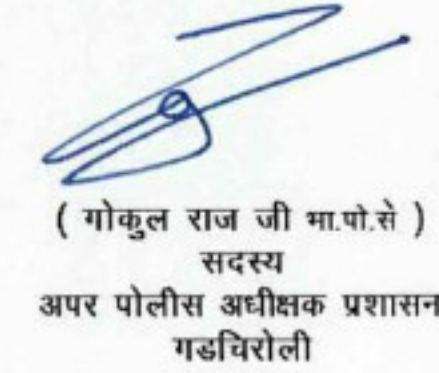 ( गोकुल राज जी भा.पो.से )
सदस्य
अपर पोलीस अधीक्षक प्रशासन
गडचिरोली